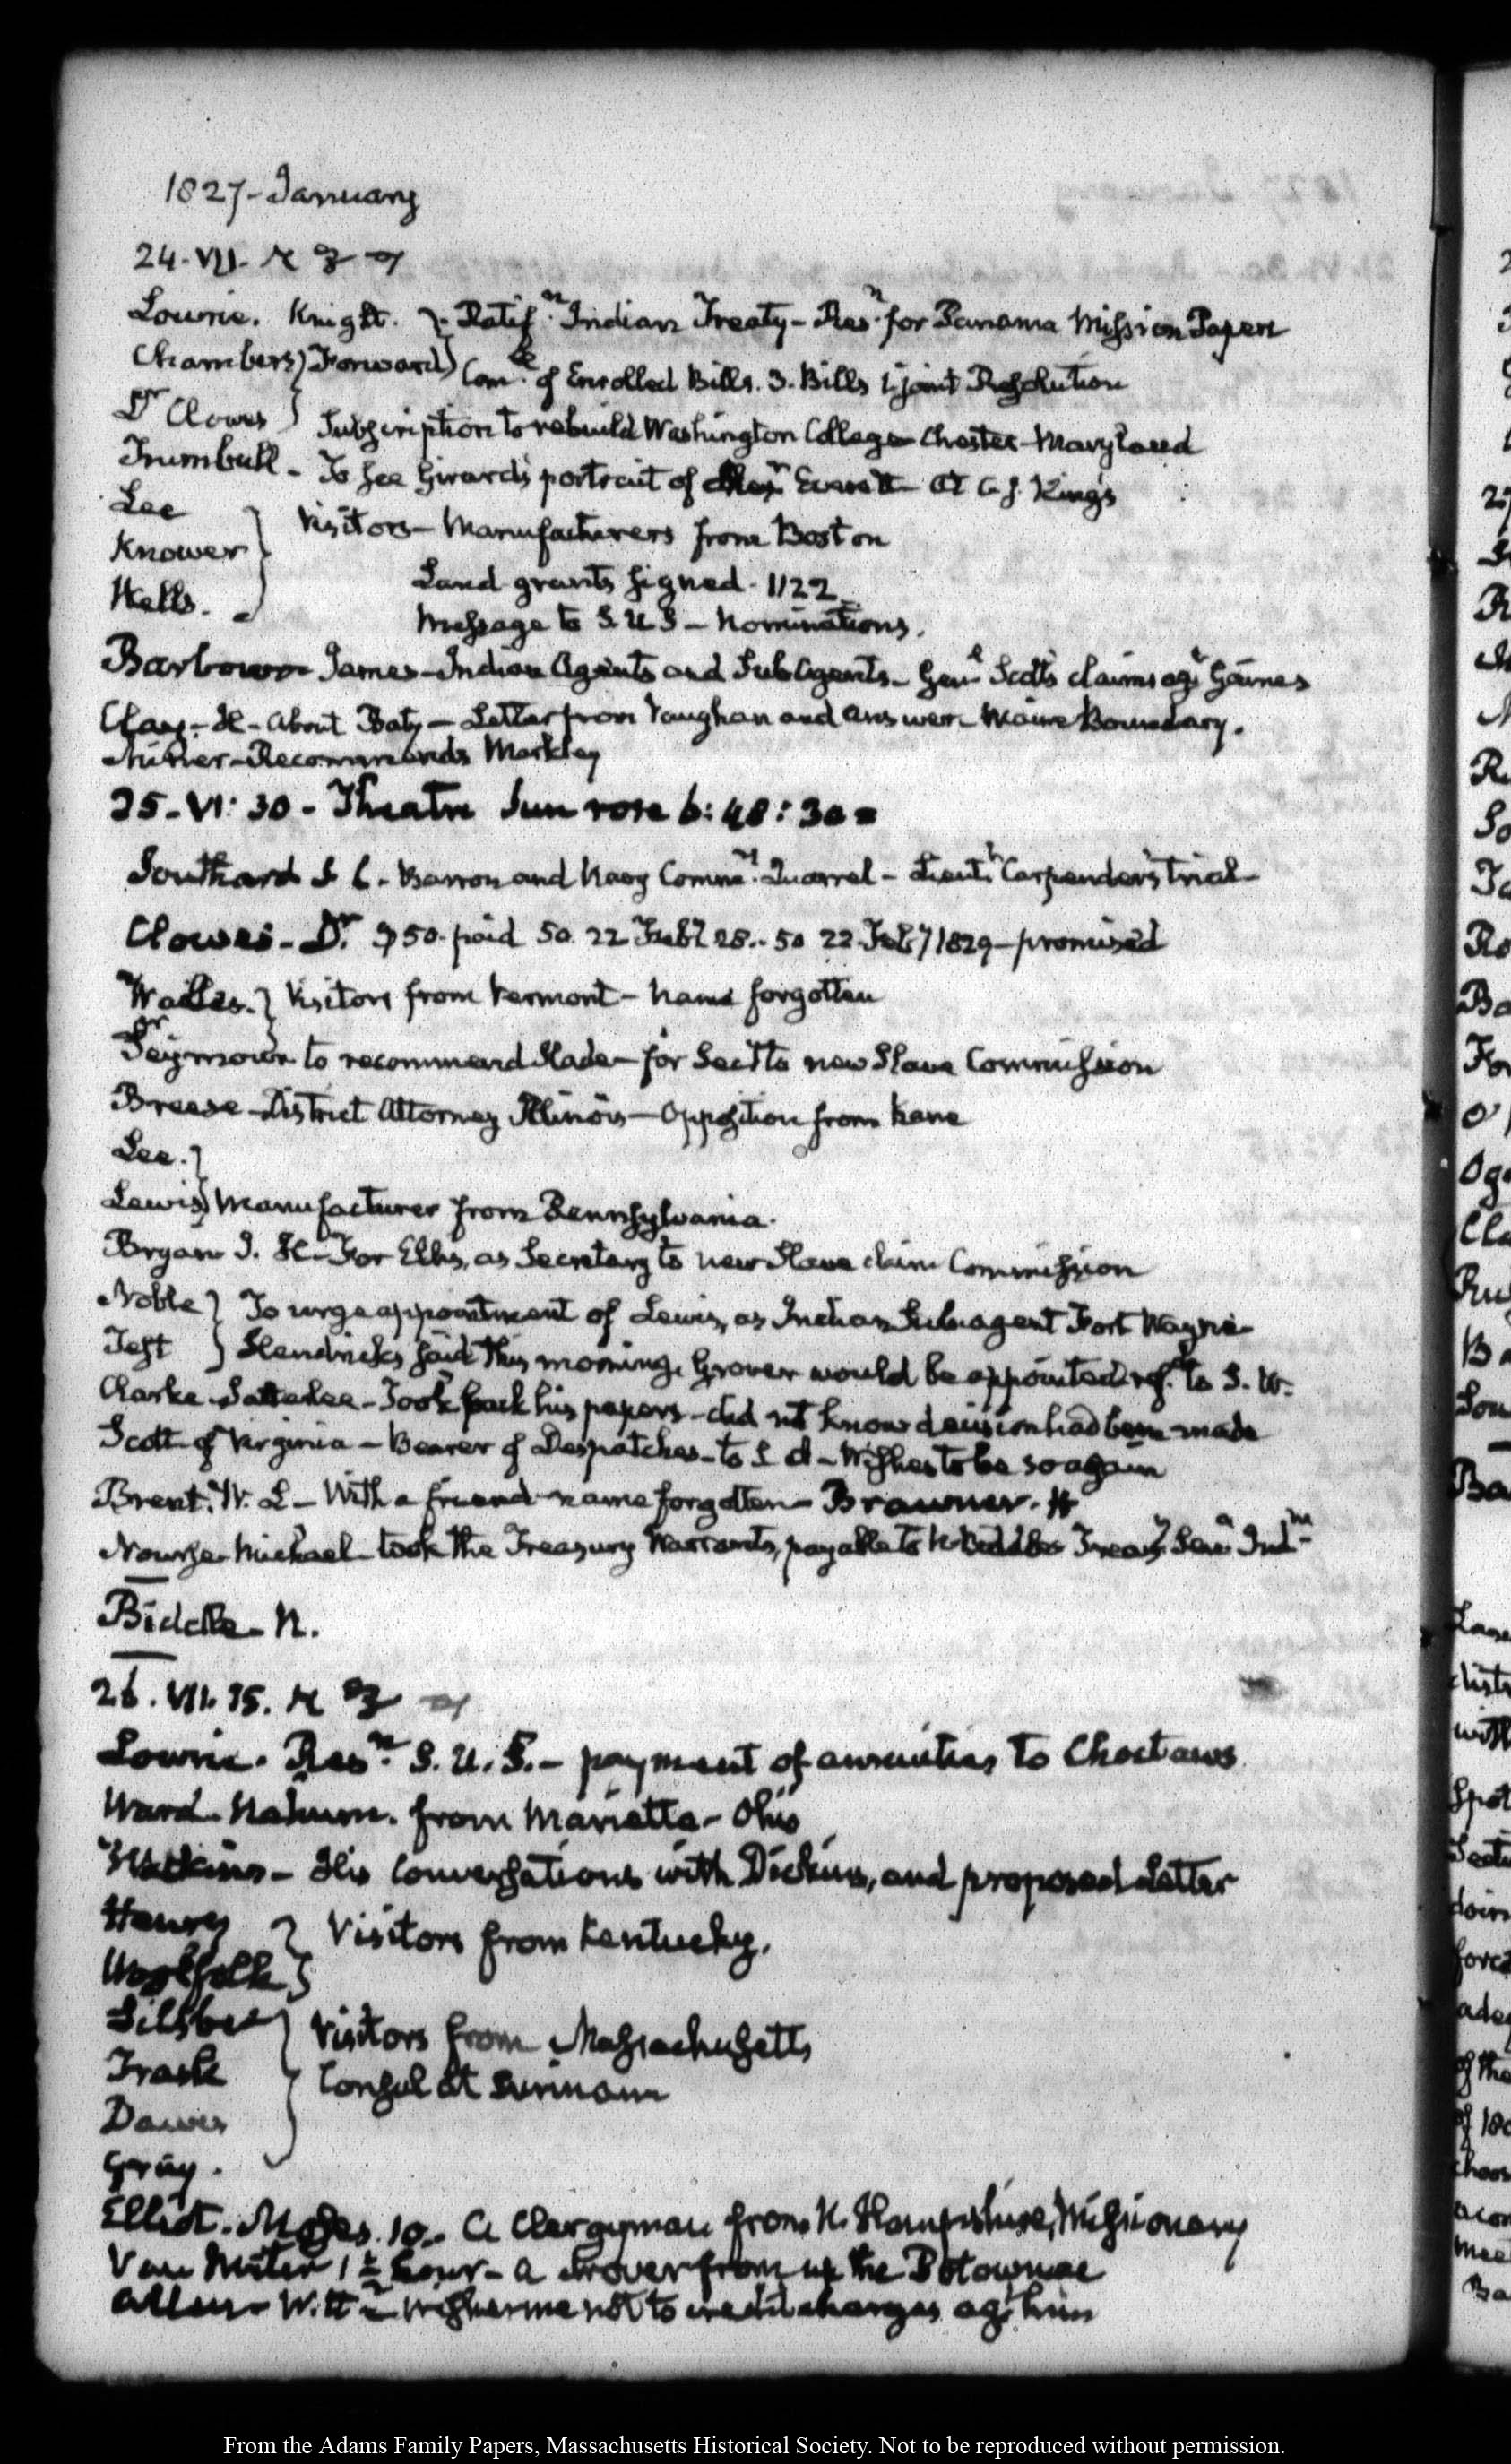 1827-January
24. VII.
Lowrie. Knight. }- Ratifn. Indian Treaty- Resn. for Panama Mission Papers
Chambers } Forward } Comee. of Enrolled Bills. 3. Bills 1 joint Resolution
Dr Clowes } Subscription to rebuild Washington College Chester-Maryland
Trumbull- To see Girard's portrait of Alexr. Everett at C. B. King's
Lee
Knower } Visitors- Manufacturers from Boston
Wells.
Land grants signed. 1122
Message to S. U. S- Nominations.
Barbour James-Indian Agents and SubAgents- Genl Scott's claims agt Gaines
Clay-H-About Baty- Letter from Vaughan and answer- Maine Boundary.
Miner-Recommends Markley
25-VI:30- Theatre Sun rose 6:48:30
Southard S L- Barron and Navy Commrs. Quarrel- Lieutt. Carpender's trial
Clowes- Dr. $50. paid 50. 22 Feby 28.- 50 22. Feby 1829-promised
Wailes. } Visitors from Vermont- name forgotten
Seymour to recommend Slade- for Secy to new Slave Commission
Breese-District Attorney Illinois-Opposition from Kane
Lee. }
Lewis } Manufacturer from Pennsylvania.
Bryan J. H-For Ellis, as Secretary to new Slave claim Commission
Noble } To urge appointment of Lewis, as Indian Subagent Fort Wayne
Test } Hendricks said this morning, Grover would be appointed refd. to S. W.
Clarke. Satterlee-Took back his papers-did not know decision had been made
Scott of Virginia- Bearer of Despatches-to S A-Wishes to be so again
Brent. W. L- With a friend-name forgotten- Brawner. H
Nourse Michael-took the Treasury Warrants, payable to N Biddle Treasy Sena Indn
Biddle- N.
26. VII. 15.
Lowrie. Resn. S. U. S.- payment of annuities to Choctaws
Ward-Nahum. from Marietta-Ohio
Watkins- His conversations with Dickins, and proposed Letter
Henry } Visitors from Kentucky.
Woolfolk }
Silsbee } Visitors from Massachusetts
Trask } Consul at Surinam
Dawes
Gray.
Elliot. Moses. 10.. A Clergyman from N. Hampshire, Missionary
Van Meter 1 1/2 hour- a drover from up the Potowmac
Allen- W. H- Wishes me not to credit charges agt him
From the Adams Family Papers, Massachusetts Historical Society. Not to be reproduced without permission.